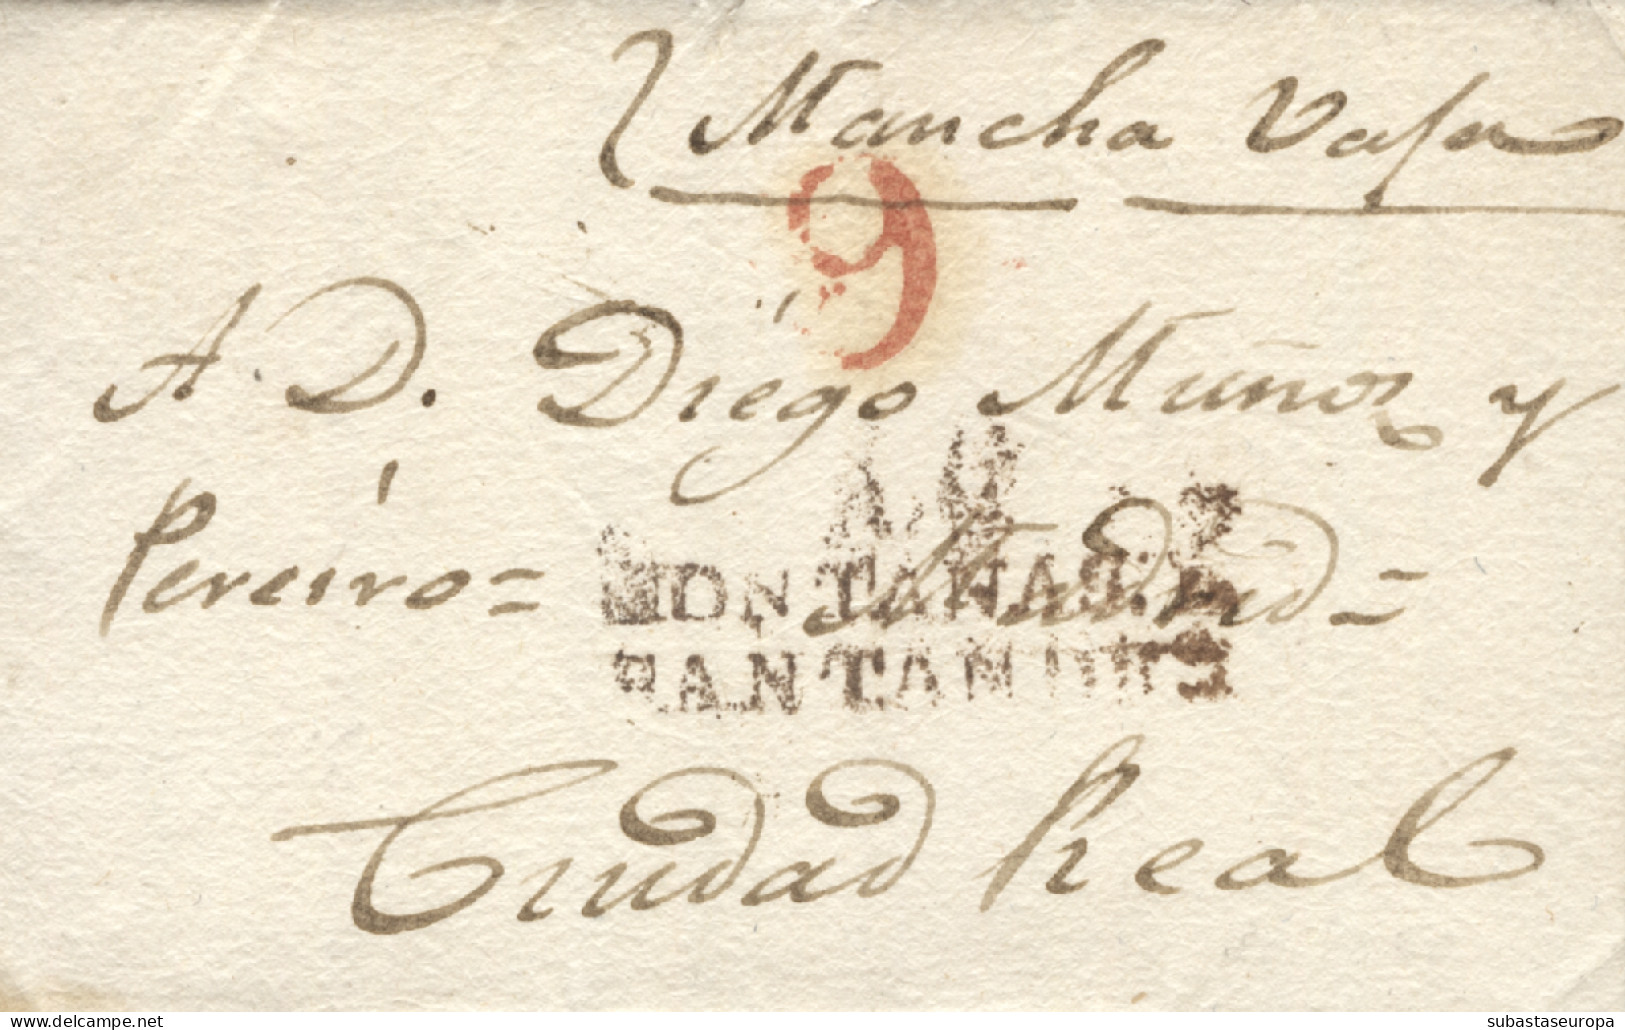 Mancha Vaja
9
A D. Diego Muñoz y
Pereiro = Madrid =
MONTAÑAS.D
SANTANDER
Ciudad Real
delcampe.net
subastaseuropa